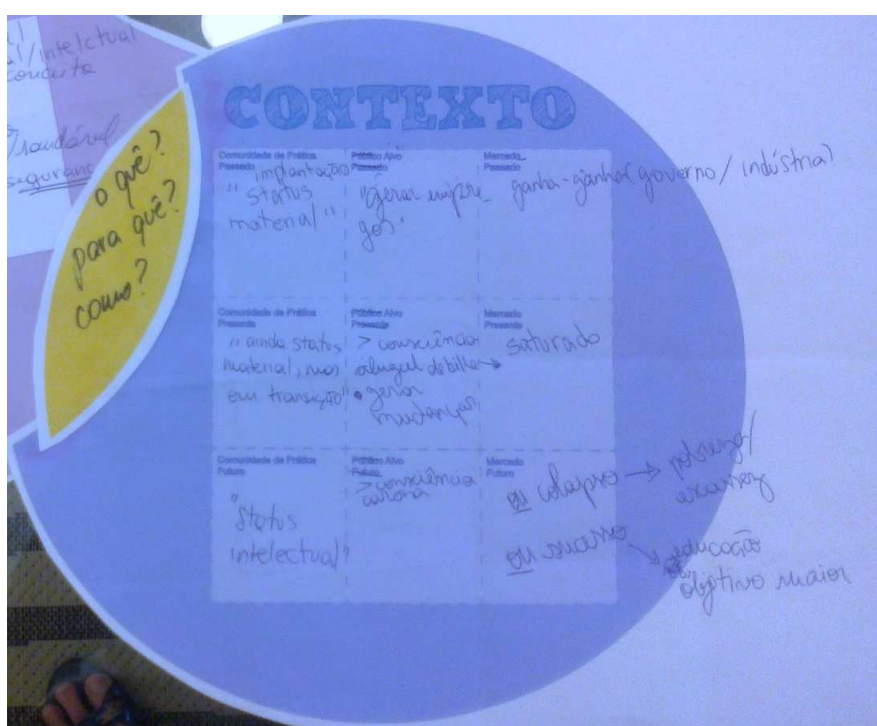 l/intelctual
conceito
saudável
seguranç
o quê?
para quê?
como?
CONTEXTO
Comunidade de Prática
Passado
implantação
"status
material"
Público Alvo
Passado
"gerar empre
gos"
Mercado
Passado
ganha-ganha (governo / indústria)
Comunidade de Prática
Presente
"ainda status
material, mas
em transição"
Público Alvo
Presente
> consciência
aluguel de bike
• gerar
mudanças
Mercado
Presente
saturado
Comunidade de Prática
Futuro
"
Status
intelectual"
Público Alvo
Futuro
> consciência
carona
Mercado
Futuro
ou colapso → pobreza/
escassez
ou sucesso
educação
objetivo maior